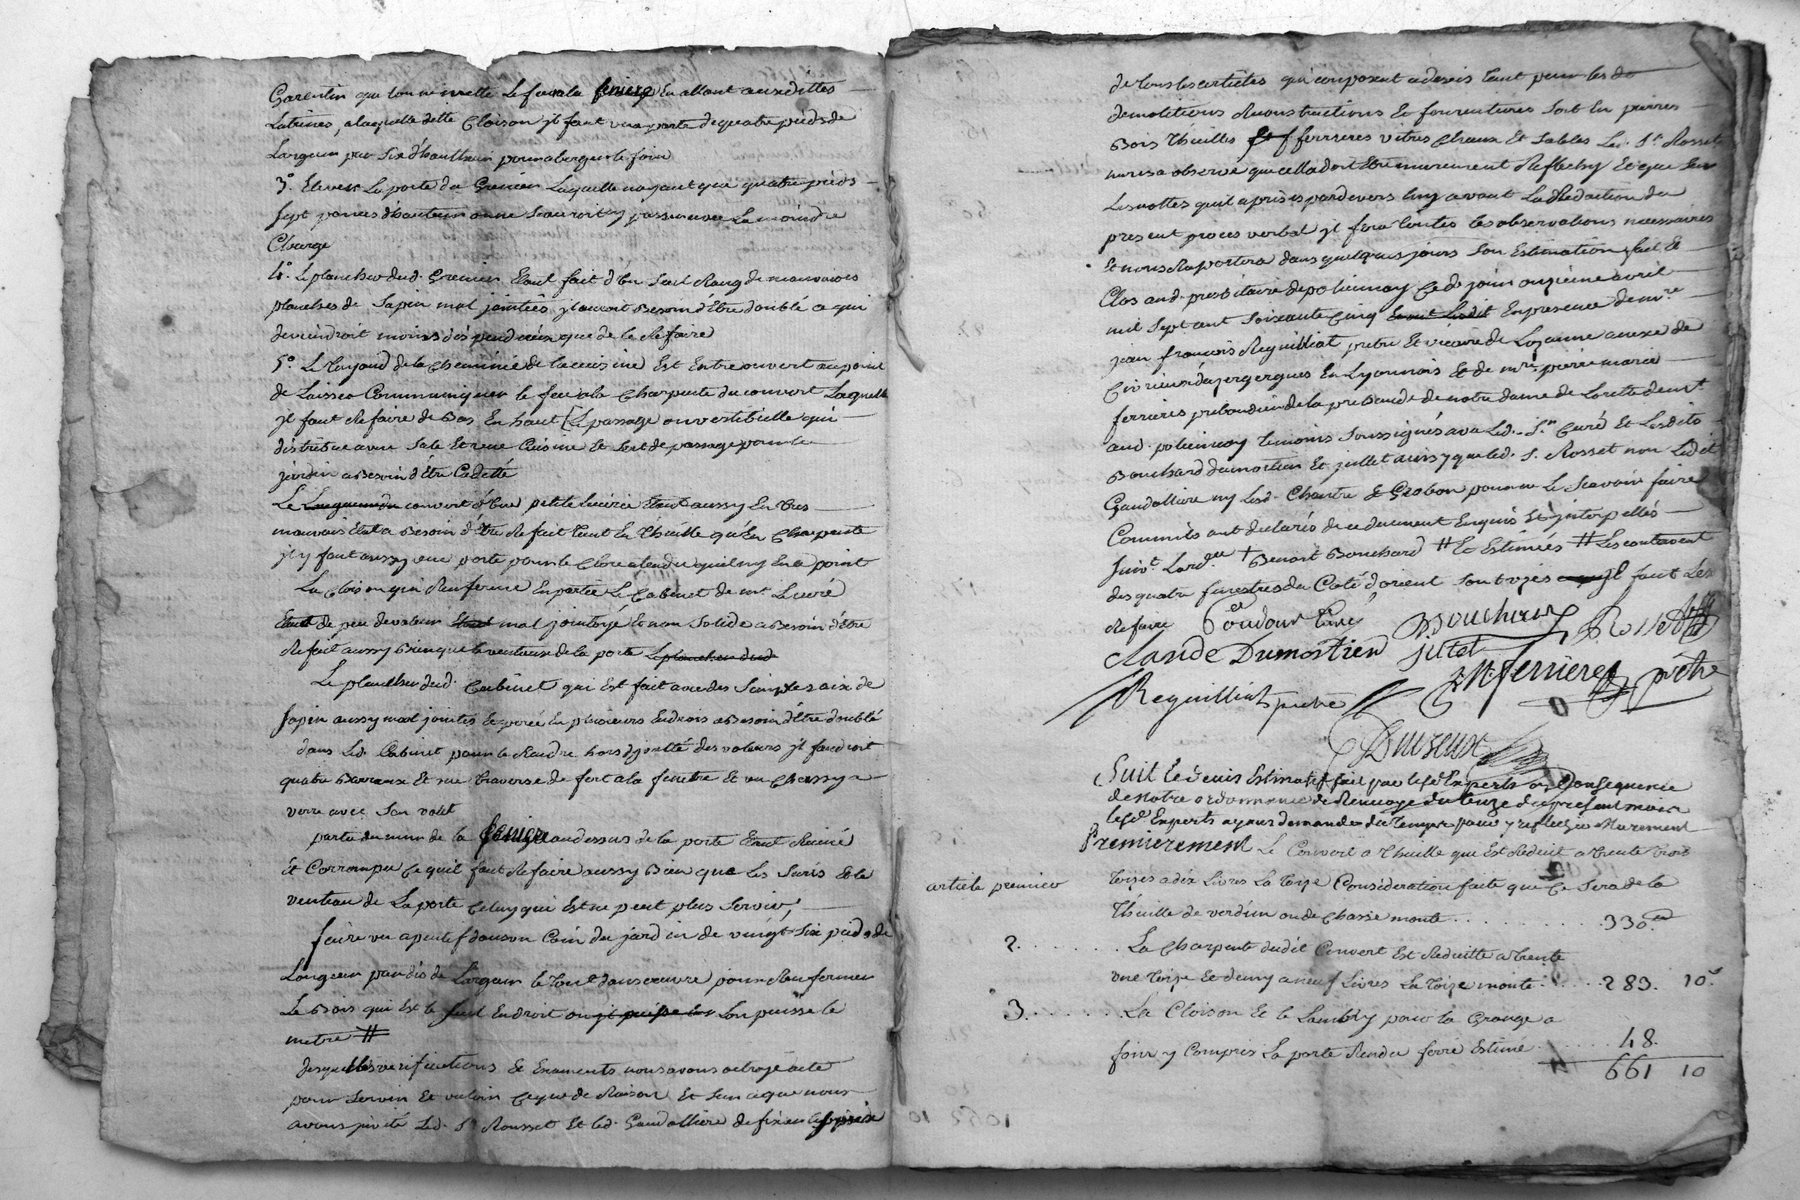 Garentir que l'on ne mette le feu a la feniere En allant aux dittes
Latrines, a laquelle ditte Cloison jl faut une porte de quatre pieds de
Largeur par Six d'hautheur pour aberger le foin
3°. Elever La porte du Grenier Laquelle n'ayant que quatre pieds
sept pouces d'hauteur on ne Scauroit y passer avec La moindre
Charge
4°. Le plancher dud. Grenier Etant fait d'Un Seul Rang de mauvaises
planches de Sapin mal jointées jl auroit Besoin d'Etre doublé ce qui
deviendroit moins dispendieux que de le Refaire
5°. Le Tuyaud de la Cheminée de la cuisine Est Entre ouvert au point
de Laisser Communiquer le feu a la Charpente du couvert Laquelle
jl faut Refaire de Bas En haut Le passage ou vestibulle qui
distribue a une Sale Et a une Cuisine Et Sert de passage pour le
jardin a Besoin d'Etre Cadetté
Le couvert d'Une petite Ecurie Etant aussy En tres
mauvais Etat a Besoin d'Etre Refait tant En Thuille qu'En Charpente
jl y faut aussy une porte pour le Clore atendu quil ny En a point
La Cloison qui Renferme En partie Le Cabinet de mr Le curé
Etant de peu de valeur Etant mal jointoyé Et non Solide a Besoin d'Etre
Refait aussy Bien que le venteau de la porte Le plancher dud
Le plancher dud. Cabinet qui Est fait avec des Simples aix de
Sapin aussy mal jointes Et percé En plusieurs Endrois a Besoin d'Etre doublé
dans Led. Cabinet pour le Rendre hors d'jnsulte des voleurs jl faudroit
quatre Barreaux Et une traverse de fert a la fenetre Et un Chassy a
verre avec Son volet
partie du mur de la feniere au dessus de la porte Etant Ruiné
Et Corrompu Ce qu'il faut Refaire aussy Bien que Les Suris Et le
venteau de La porte Celuy qui Est ne peut plus Servir,
faire un apentif dans un Coin du jardin de vingt Six pieds de
Longeur par dis de Largeur le tout dans œuvre pour Renfermer
Le Bois qui Est le seul Endroit ou Lon puisse le
mettre #
Desquelles verifications Et Examents nous avons octroyé acte
pour Servir Et valoir Ce que de Raison Et Sur ce que nous
avons jnvité Led. Sr Rousset Et led. Gaudalliere de fixer Le prix
de tous les articles qui composent cidessus tant pour les d.
demolitions Reconstructions Et fournitures Soit En pierres
Bois Thuilles Et ferrures vitres Chaux Et Sables Led. Sr. Rosset
nous a observé que cella doit Etre murement Reflechy Et que Sur
Les nottes quil a prises pardevers Luy avant La Redaction du
present proces verbal jl fera toutes les observations necessaires
Et nous Raportera dans quelques jours Son Estimation, fait Et
Clos aud. presbitaire de poleimoy Ce d. jour onzieme avril
mil Sept cent Soixante Cinq En presence de mre.
jean françois Reguilliat pretre Et vicaire de Lozanne anexe de
Civrieux dazergergues En Lyonnois Et de mre. pierre marie
ferrieres prebandier de la prebande de notre dame de Lorette deserv.t
aud. poleimoy temoins Soussignés avec Led. Sr. Curé Et Lesdits
Bouchard dumortier Et juillet ainsy que led. S. Rosset non Ledit
Gaudalliere ny Lesd. Chantre Et Grobon pour ne le Scavoir faire
Commils ont declarés de ce duement Enquis Et jnterpellés
Suivt. Lord.ce + Benoit Bouchard # Et Estimés # Les contrevent
des quatre fenestres du Coté d'orient sont usés jl faut Les
Refaire Coudour Curé Bouchard Rosset
Claude Dumortier jullet
Reguilliat pretre M ferrieres pretre
Duiseux
Suit le devis Estimatif fait par lesd. Experts en Consequence
de notre ordonnance de Renvoye du Onze du present mois
lesd. Experts ayant demandé du Tempt pour y reflechir Murement
Premierement Le Couvert a Thuille que Est Reduit a trente trois
article premier toises a dix Livres La toise Consideration faite que Ce Sera de la
Thuille de verdun ou de Chasse monte . . . . . . 330.
2. . . . . . . . La Charpente dudit Couvert Est Reduitte a trente
une toise Et demy a neuf Livres La toise monte . . . . . 283. 10s
3. . . . . . . . La Cloison Et le Lambry pour la Grange a
foin y Compris La porte Rendu ferré Estime . . . . . 48.
661 10